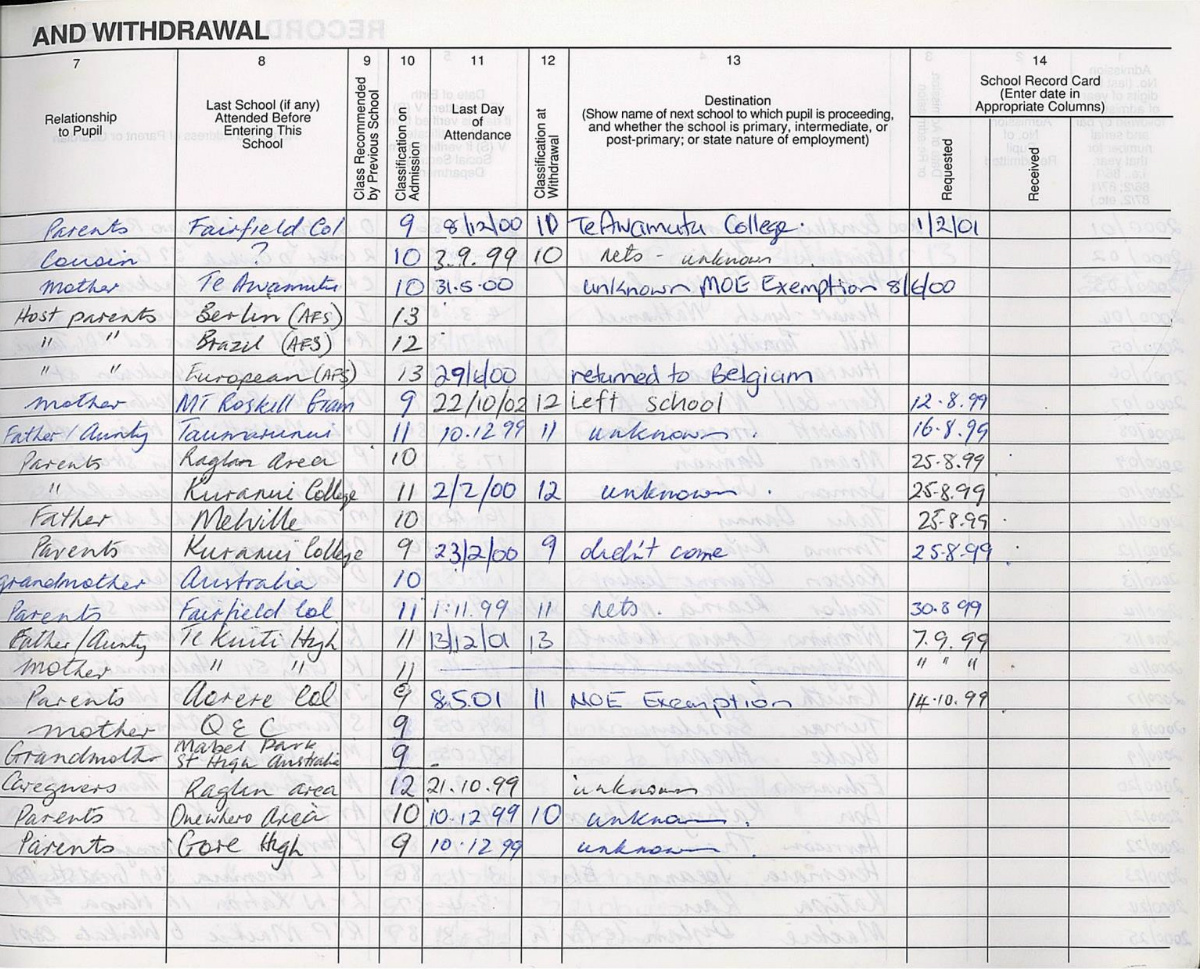 AND WITHDRAWAL
7 8 9 10 11 12 13 14
Relationship to Pupil
Last School (if any) Attended Before Entering This School
Class Recommended by Previous School
Classification on Admission
Last Day of Attendance
Classification at Withdrawal
Destination
(Show name of next school to which pupil is proceeding, and whether the school is primary, intermediate, or post-primary; or state nature of employment)
School Record Card
(Enter date in Appropriate Columns)
Requested
Received
Parents Fairfield Col 9 8/12/00 10 Te Awamutu College. 1/2/01
Cousin ? 10 3.9.99 10 nets - unknown
Mother Te Awamutu 10 31.5.00 unknown MOE Exemption 8/6/00
Host parents Berlin (AFS) 13
" " Brazil (AFS) 12
" " European (AFS) 13 29/6/00 returned to Belgium
Mother MT Roskill Gram 9 22/10/02 12 Left school 12.8.99
Father/Aunty Taumarunui 11 10.12.99 11 unknown. 16.8.99
Parents Raglan Area 10 25.8.99
" Kuranui College 11 2/2/00 12 unknown. 25.8.99
Father Melville 10 25.8.99
Parents Kuranui College 9 23/2/00 9 didn't come 25.8.99
grandmother Australia 10
Parents Fairfield Col 11 1.11.99 11 nets. 30.8.99
Father/Aunty Te Kuiti High 11 13/12/01 13 7.9.99
Mother " " 11 " " "
Parents Aorere Col 9 8.5.01 11 MOE Exemption 14.10.99
Mother Q E C 9
Grandmother Mabel Park St High Australia 9 -
Caregivers Raglan area 12 21.10.99 unknown
Parents Onewhero Area 10 10.12.99 10 unknown.
Parents Gore High 9 10.12.99 unknown.